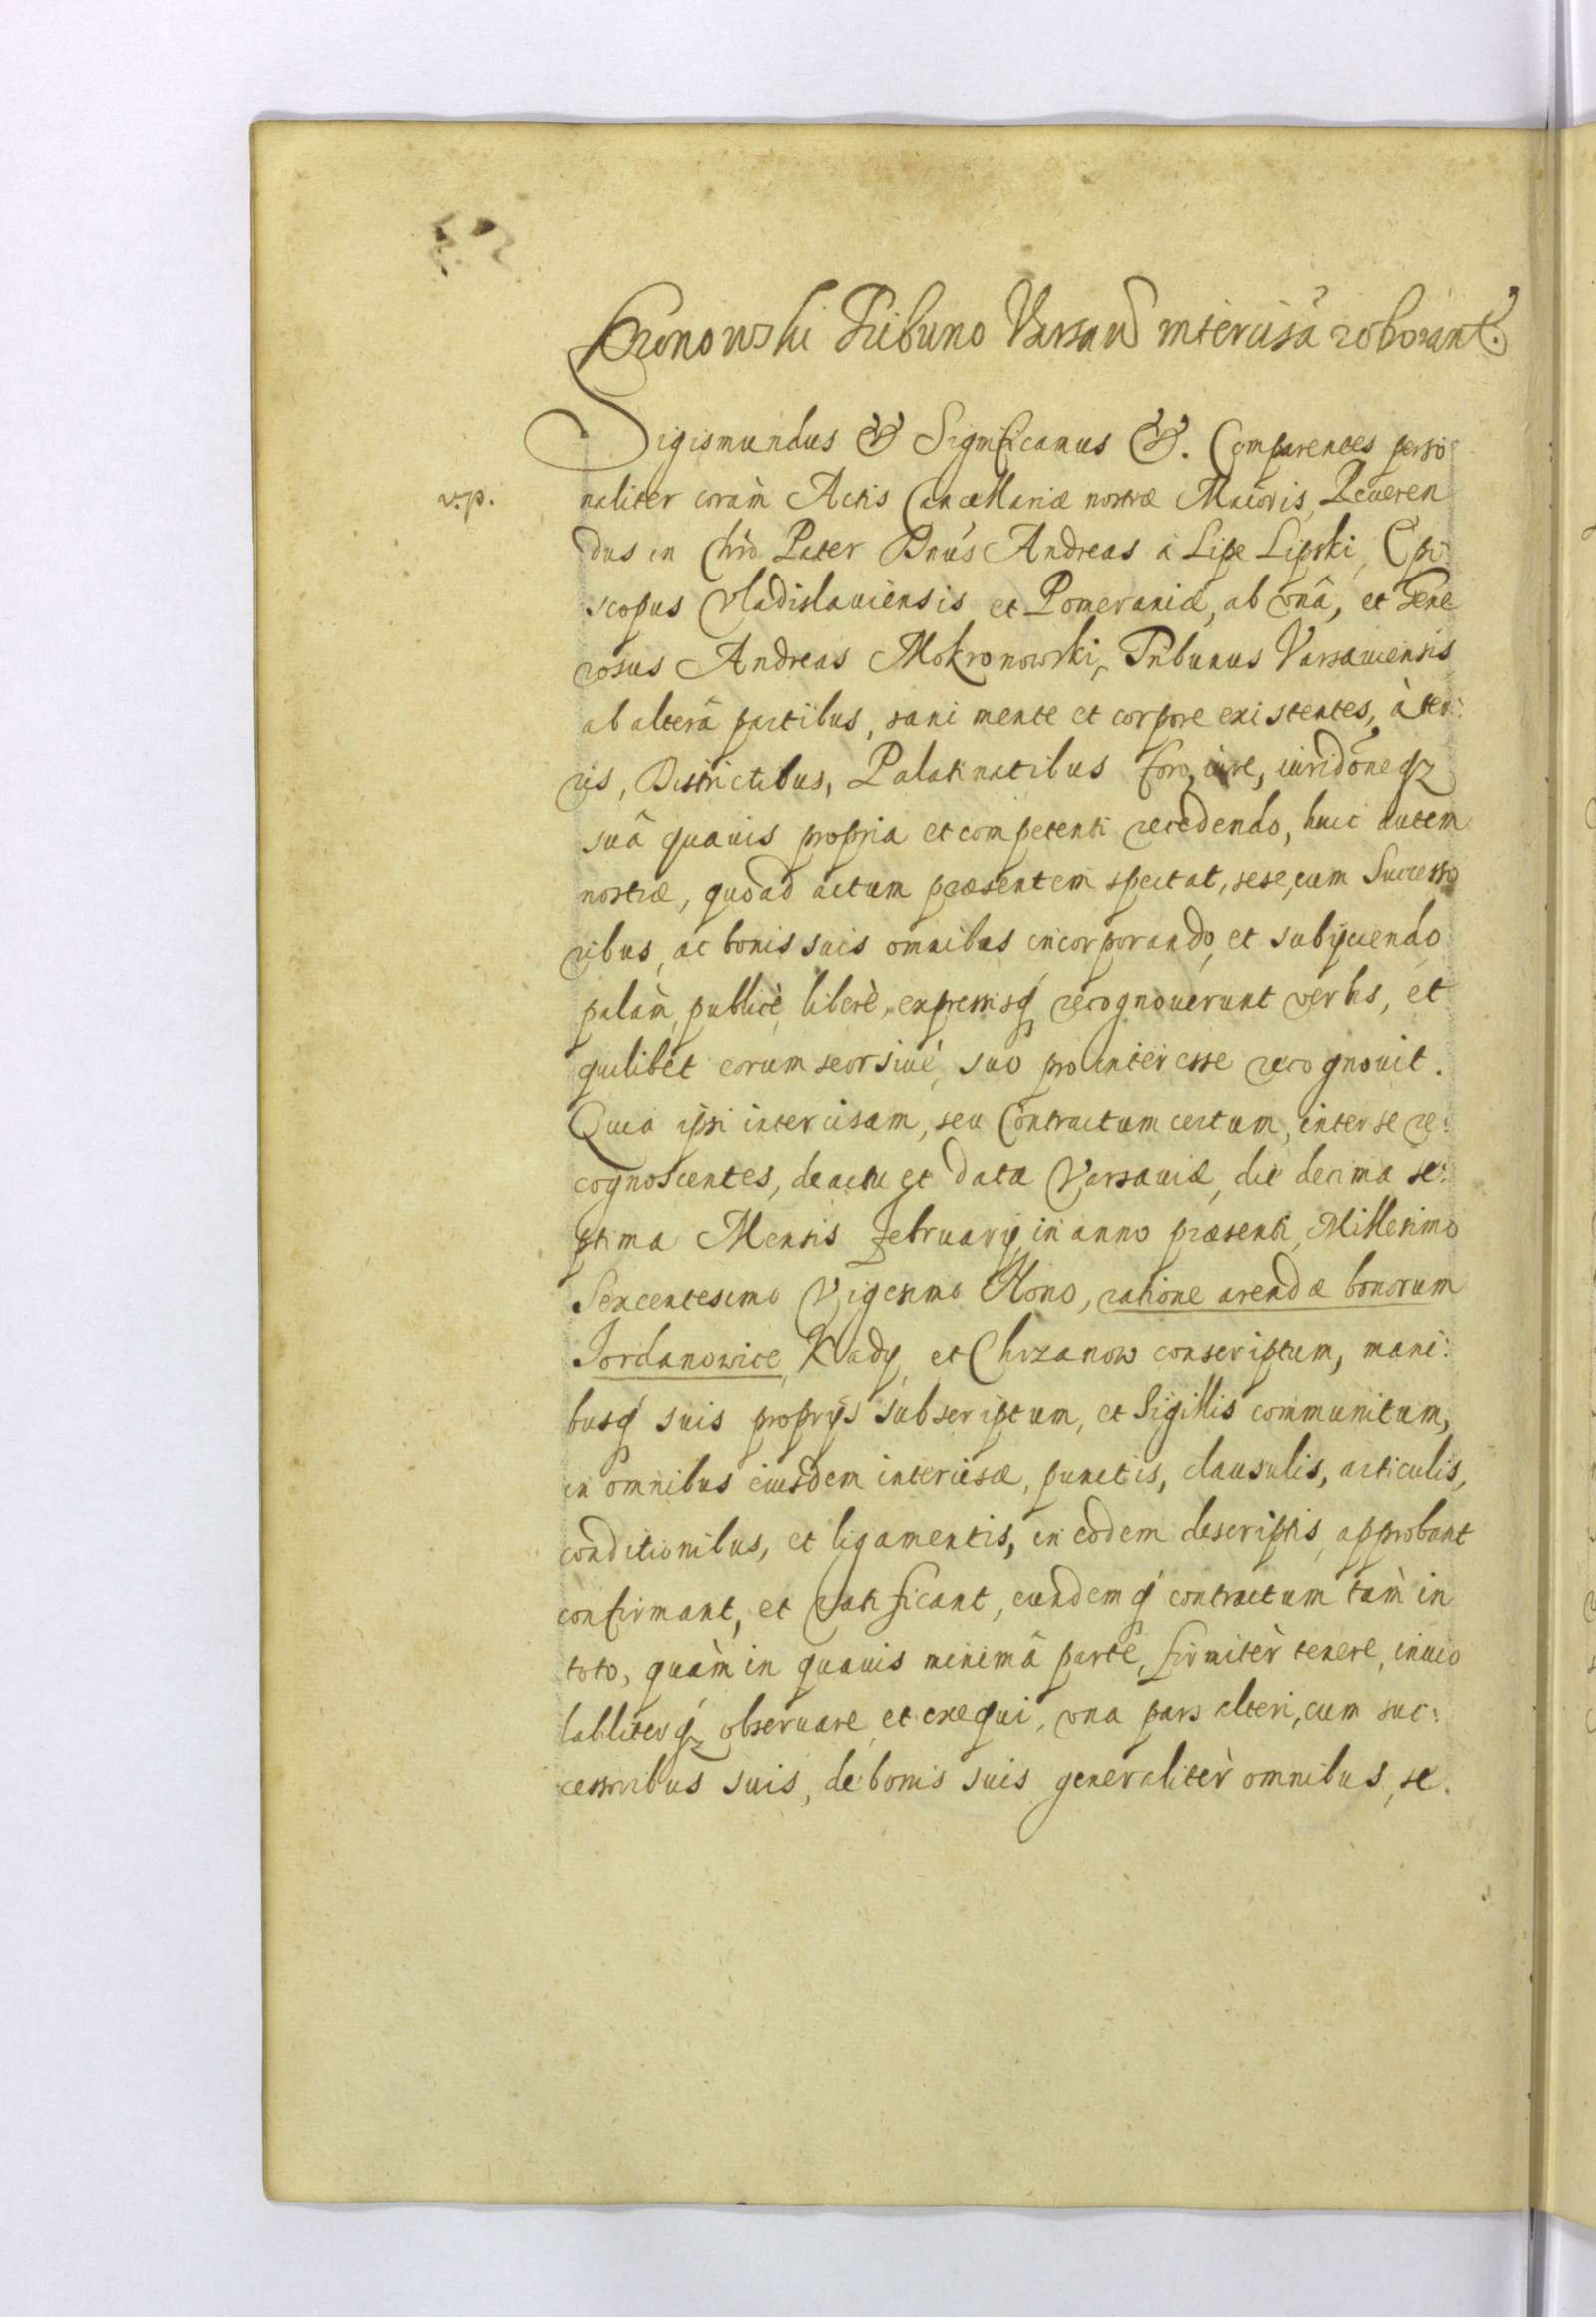 kronowski Tribuno Varsaw intercisã roborant.
Sigismundus &. Significamus &. Comparentes perso
v.p.
naliter coràm Actis Cancellariæ nostræ Maioris, Reueren
dus in Chrō Pater Dnūs Andreas a Lipe Lipski, Epi
scopus Vladislauiensis et Pomeraniæ, ab vnâ, et Gene
rosus Andreas Mokronowski, Tribunus Varsauiensis
ab alterâ partibus, sani mente et corpore existentes, à ter:
ris, Districtibus, Palatinatibus foro, iure, iuridōneqz
suâ quauis propria et competenti recedendo, huic autem
nostræ, quoad actum præsentem spectat, sese, cum Successo
ribus, ac bonis suis omnibus incorporando, et subijciendo
palàm, publicè, liberè, expressisq́ recognouerunt verbis, et
quilibet eorum seorsiuè, suo pro interesse recognouit.
Quia ipsi intercisam, seu Contractum certum, inter se re:
cognoscentes, de actu et data Varsauiæ, die decima se:
ptima Mensis Februarij in anno præsenti, Millesimo
Sexcentesimo Vigesimo Nono, ratione arendæ bonorum
Jordanowice, Kady, et Chrzanow conscriptum, mani:
busq́ suis proprijs subscriptum, et Sigillis communitum,
in omnibus eiusdem intercisæ, punctis, clausulis, articulis,
conditionibus, et ligamentis, in eodem descriptis, approbant
confirmant, et ratificant, eundemq́ contractum tàm in
toto, quàm in quauis minimâ parte, firmitèr tenere, inuio
labiliterq́z obseruare et exequi, vna pars alteri, cum suc:
cessoribus suis, de bonis suis generalitèr omnibus, se.